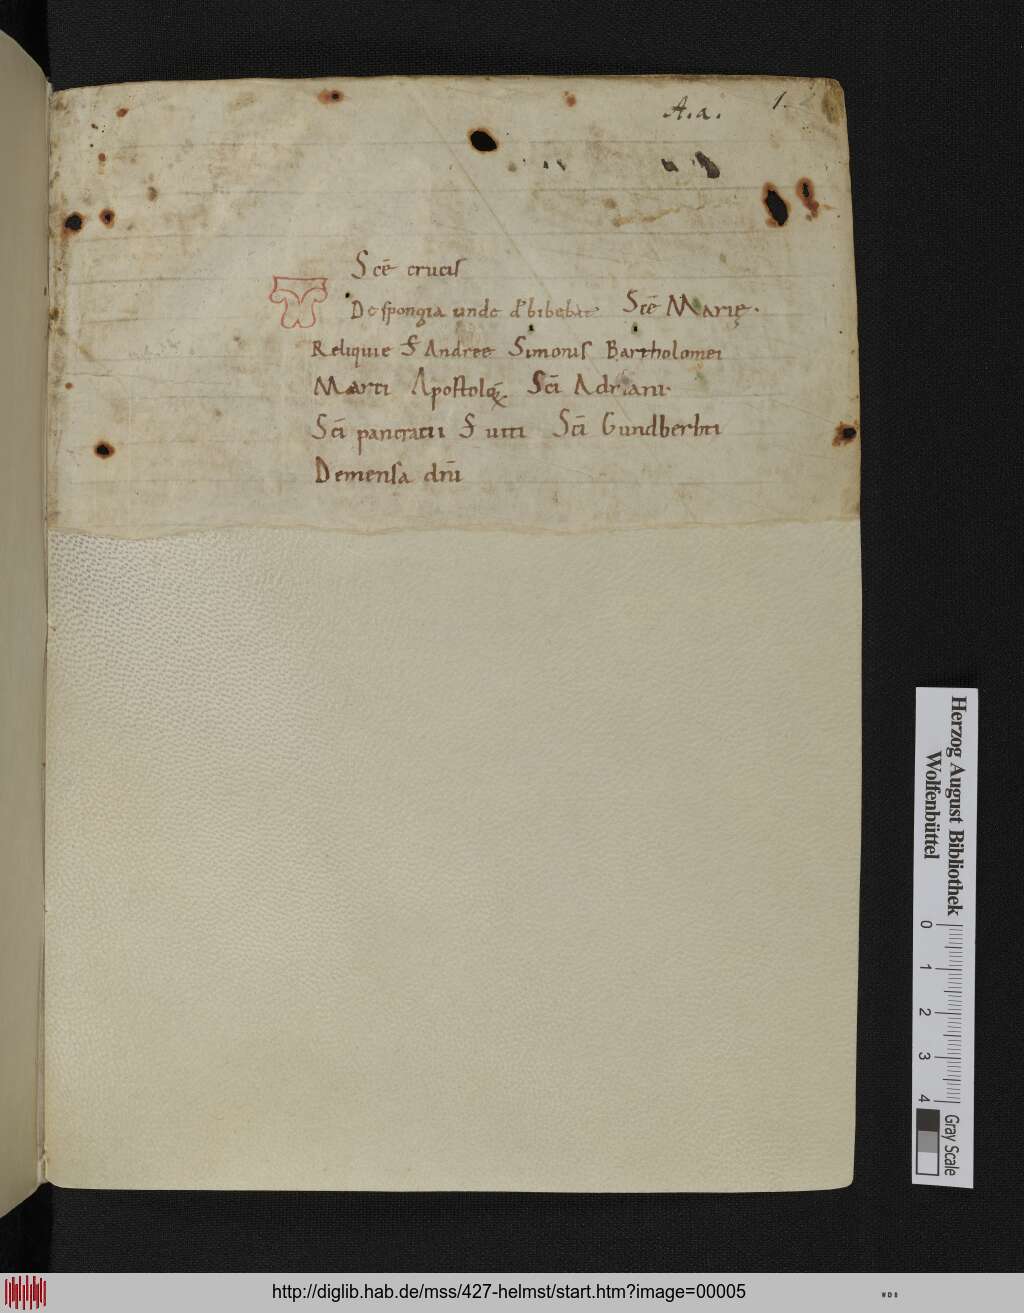 A.a. 1.
Scē crucis
De spongia unde dn̄s bibebat Scē Marię.
Reliquie S Andree Simonis Bartholomei
Marci Apostolo℟ Sci Adriani
Scī pancratii S uiti Scī Gundberhti
De mensa dn̄i
Herzog August Bibliothek
Wolfenbüttel
0 1 2 3 4
Gray Scale
http://diglib.hab.de/mss/427-helmst/start.htm?image=00005